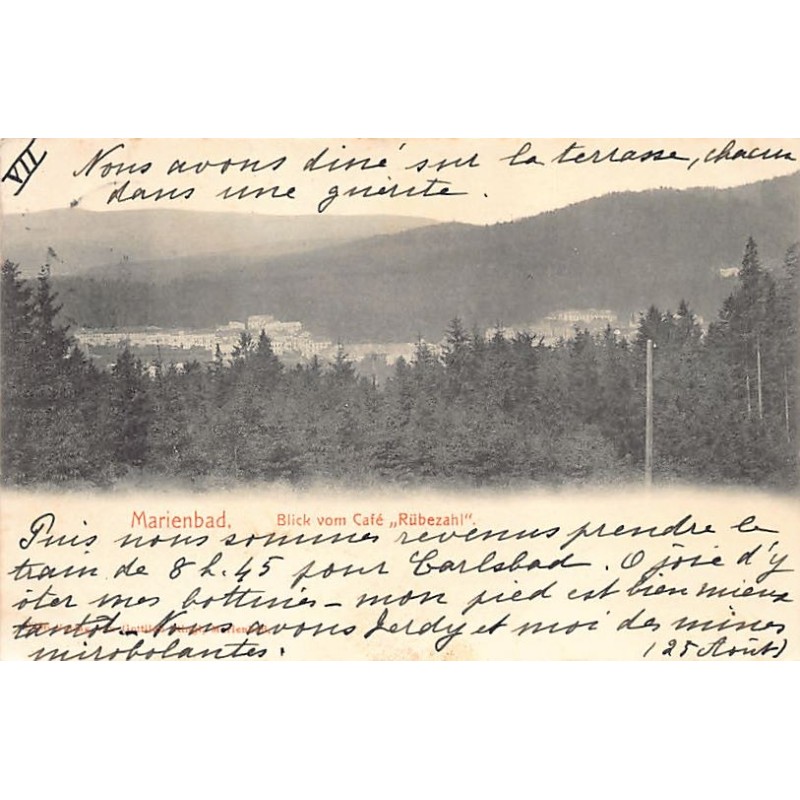 VII
Nous avons diné sur la terrasse, chacun
dans une guérite.
Marienbad. Blick vom Café „Rübezahl".
Puis nous sommes revenus prendre le
train de 8 h. 45 pour Carlsbad. O joie d'y
ôter mes bottines – mon pied est bien mieux
tantôt – Nous avons Jerdy et moi des mines
mirobolantes.
(25 Août)